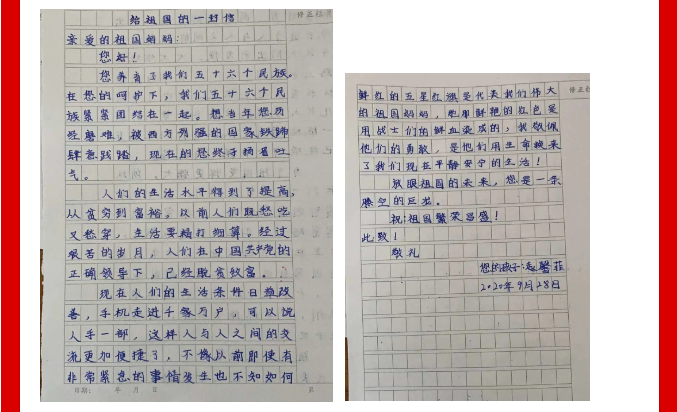 给祖国的一封信
亲爱的祖国妈妈:
您好!
您养育了我们五十六个民族。
在您的呵护下,我们五十六个民
族紧紧团结在一起。想当年您历
经磨难,被西方列强的国家铁蹄
肆意践踏,现在的您终于扬眉吐
气。
人们的生活水平得到了提高,
从贫穷到富裕。以前人们愁吃
又愁穿,生活要精打细算。经过
艰苦的岁月,人们在中国共产党的
正确领导下,已经脱贫致富。
现在人们的生活条件日趋改
善,手机走进千家万户,可以说
人手一部,这样人与人之间的交
流更加便捷了,不像以前即使有
非常紧急的事情发生也不知如何
日期: 年 月 日 页
鲜红的五星红旗是代表我们伟大
的祖国妈妈,她那鲜艳的红色是
用战士们的鲜血染成的,我敬佩
他们的勇敢,是他们用生命换来
了我们现在平静安宁的生活!
放眼祖国的未来,您是一条
腾空的巨龙。
祝:祖国繁荣昌盛!
此致!
敬礼
您的孩子:馨菲
2020年9月28日